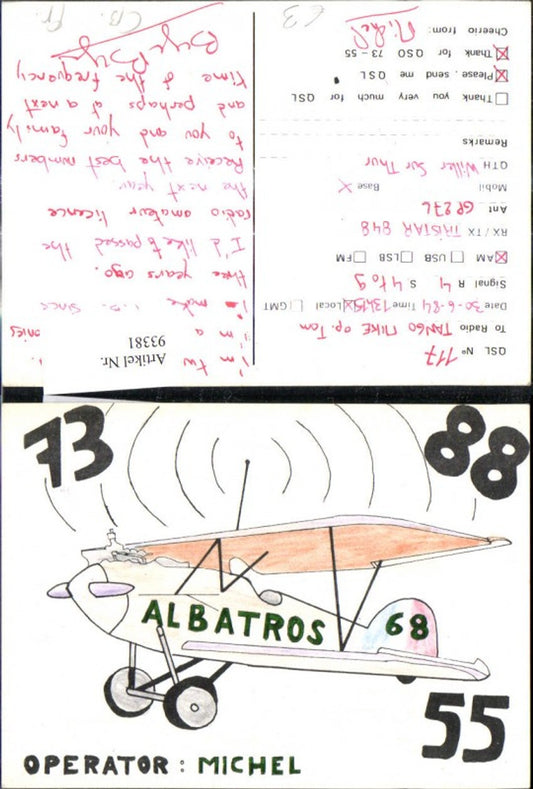 QSL N° 117
To Radio TANGO MIKE op. Tom
Date 30-6-84 Time 13h15 Local GMT
Signal R 4 S 4 to 9
AM USB LSB FM
RX / TX TRISTAR 848
Ant GP 27L
Mobil Base X
QTH Willer Sur Thur
Remarks
Thank you very much for QSL
Please . send me QSL
Thank for QSO 73 - 55
Cheerio from: Michel
i'm
Artikel Nr.
93381
i'm a
make since
three years ago.
I'd like to passed the
radio amateur licence
the next year.
Receive the best numbers
to you and your family
and perhaps at a next
time of the frequency
Bye Bye
73
88
ALBATROS 68
55
OPERATOR : MICHEL